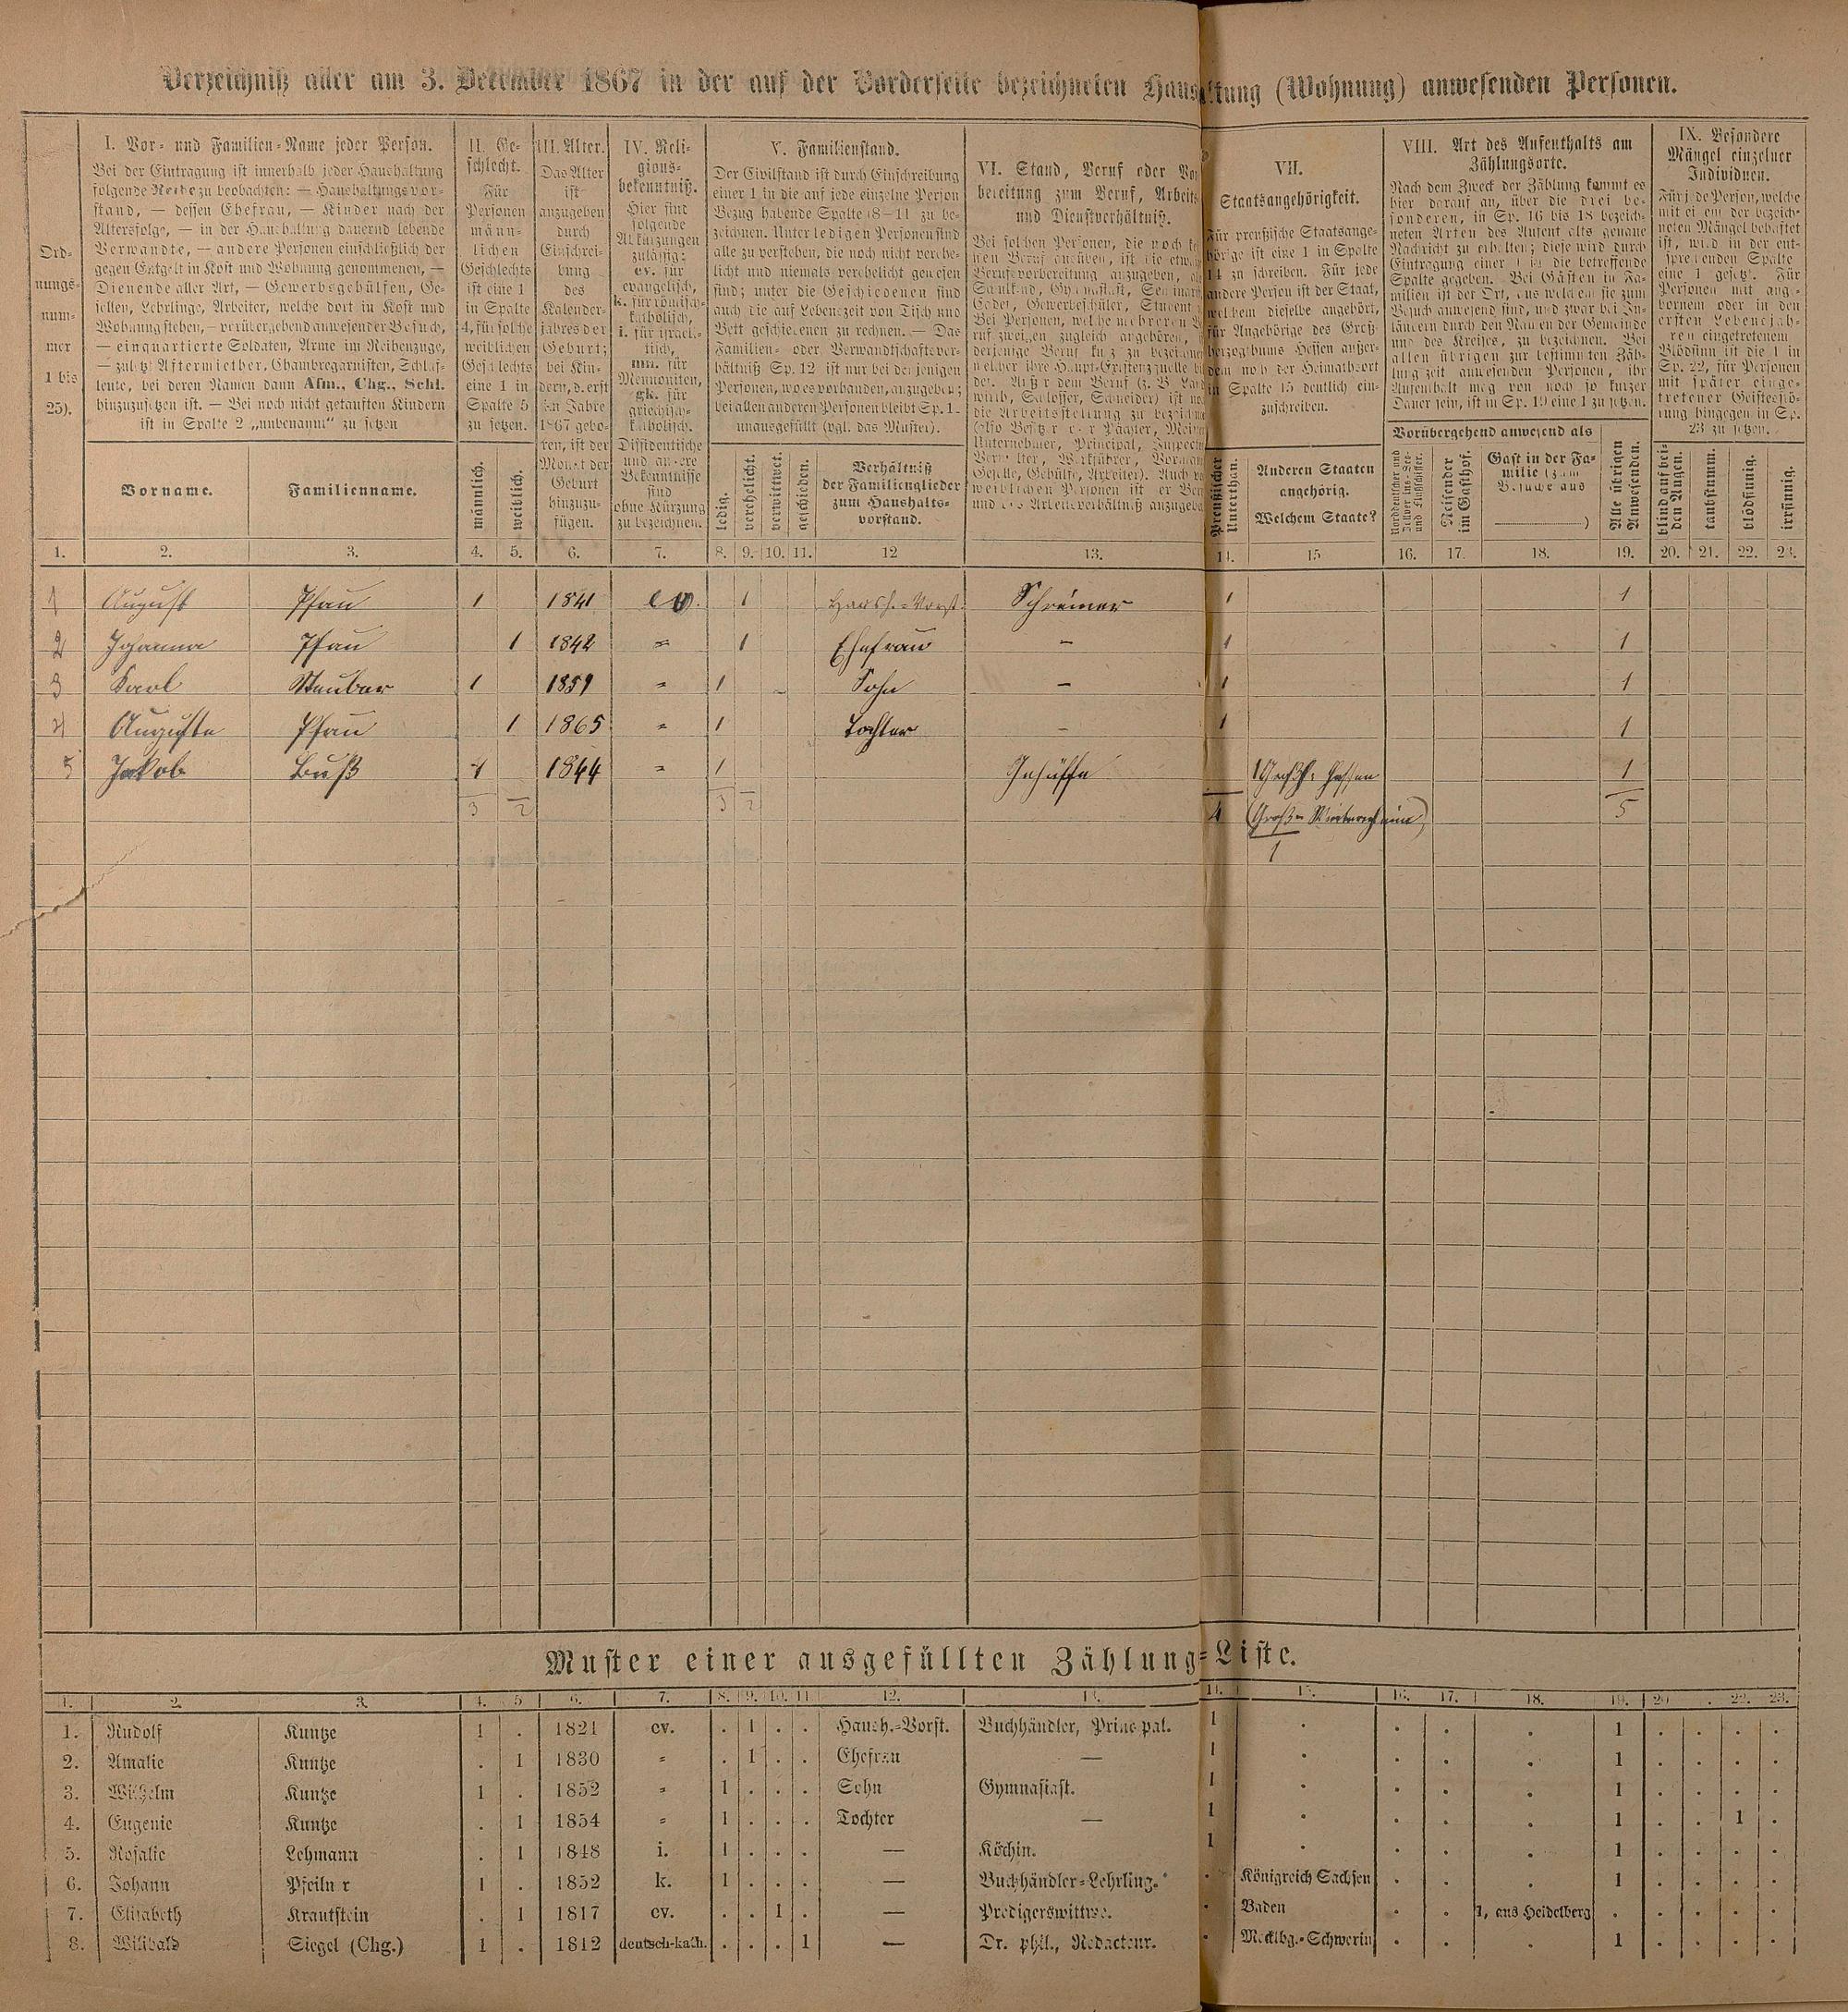 Verzeichniß aller am 3. December 1867 in der auf der Vorderseite bezeichneten Haushaltung (Wohnung) anwesenden Personen.
Ord-
nungs-
num-
mer
1 bis
25).
I. Vor- und Familien-Name jeder Person.
Bei der Eintragung ist innerhalb jeder Haushaltung
folgende Reihe zu beobachten: — Haushaltungsvor-
stand, — dessen Ehefrau, — Kinder nach der
Altersfolge, — in der Haushaltung dauernd lebende
Verwandte, — andere Personen einschließlich der
gegen Entgelt in Kost und Wohnung genommenen, —
Dienende aller Art, — Gewerbsgehülfen, Ge-
sellen, Lehrlinge, Arbeiter, welche dort in Kost und
Wohnung stehen, — vorübergehend anwesender Besuch,
— einquartierte Soldaten, Arme im Reihenzuge,
— zuletzt Aftermiether, Chambregarnisten, Schlaf-
leute, bei deren Namen dann Afm., Chg., Schl.
hinzuzusetzen ist. — Bei noch nicht getauften Kindern
ist in Spalte 2 „unbenannt“ zu setzen
Vorname.
Familienname.
II. Ge-
schlecht.
Für
Personen
männ-
lichen
Geschlechts
ist eine 1
in Spalte
4, für solche
weiblichen
Geschlechts
eine 1 in
Spalte 5
zu setzen.
männlich.
weiblich.
III. Alter.
Das Alter
ist
anzugeben
durch
Einschrei-
bung
des
Kalender-
jahres der
Geburt;
bei Kin-
dern, d. erst
im Jahre
1867 gebo-
ren, ist der
Monat der
Geburt
hinzuzu-
fügen.
IV. Reli-
gions-
bekenntniß.
Hier sind
folgende
Abkürzungen
zulässig:
ev. für
evangelisch,
k. für römisch-
katholisch,
i. für israel.-
itisch,
mn. für
Mennoniten,
gk. für
griechisch-
katholisch.
Dissidentische
und andere
Bekenntnisse
sind
ohne Kürzung
zu bezeichnen.
V. Familienstand.
Der Civilstand ist durch Einschreibung
einer 1 in die auf jede einzelne Person
Bezug habende Spalte (8—11 zu be-
zeichnen. Unter ledigen Personen sind
alle zu verstehen, die noch nicht verehe-
licht und niemals verehelicht gewesen
sind; unter die Geschiedenen sind
auch die auf Lebenszeit von Tisch und
Bett geschiedenen zu rechnen. — Das
Familien- oder Verwandtschaftsver-
hältniß Sp. 12 ist nur bei denjenigen
Personen, wo es vorhanden, anzugeben;
bei allen anderen Personen bleibt Sp. 1
unausgefüllt (vgl. das Muster).
ledig.
verehelicht.
verwittwet.
geschieden.
Verhältniß
der Familienglieder
zum Haushalts-
vorstand.
VI. Stand, Beruf oder Vor
bereitung zum Beruf, Arbeits
und Dienstverhältniß.
VII.
Staatsangehörigkeit.
Für preußische Staatsange-
hörige ist eine 1 in Spalte
14 zu schreiben. Für jede
andere Person ist der Staat,
welchem dieselbe angehört,
für Angehörige des Groß-
herzogthums Hessen außer-
dem noch der Heimathsort
in Spalte 15 deutlich ein-
zuschreiben.
Preußischer
Unterthan.
Anderen Staaten
angehörig.
Welchem Staate?
VIII. Art des Aufenthalts am
Zählungsorte.
Nach dem Zweck der Zählung kommt es
hier darauf an, über die drei be-
sonderen, in Sp. 16 bis 18 bezeich-
neten Arten des Aufenthalts genaue
Nachricht zu erhalten; diese wird durch
Eintragung einer 1 in die betreffende
Spalte gegeben. Bei Gästen in Fa-
milien ist der Ort, aus welchem sie zum
Besuch anwesend sind, und zwar bei In-
ländern durch den Namen der Gemeinde
und des Kreises, zu bezeichnen. Bei
allen übrigen zur bestimmten Zäh-
lungszeit anwesenden Personen, ihr
Aufenthalt mag von noch so kurzer
Dauer sein, ist in Sp. 19 eine 1 zu setzen.
Vorübergehend anwesend als
Reisender
im Gasthof.
Gast in der Fa-
milie (zum
Besuche aus
)
Alle übrigen
Anwesenden.
IX. Besondere
Mängel einzelner
Individuen.
Für jede Person, welche
mit einem der bezeich-
neten Mängel behaftet
ist, wird in der ent-
sprechenden Spalte
eine 1 gesetzt. Für
Personen mit ange-
bornem oder in den
ersten Lebensjah-
ren eingetretenem
Blödsinn ist die 1 in
Sp. 22, für Personen
mit später einge-
tretener Geistesstö-
rung hingegen in Sp.
23 zu setzen.
blind auf bei-
den Augen.
taubstumm.
blödsinnig.
irrsinnig.
1. 2. 3. 4. 5. 6. 7. 8. 9. 10. 11. 12 13. 14. 15 16. 17. 18. 19. 20. 21. 22. 23.
1 August Pfau 1 1841 ev. 1 Haush.-Vorst. Schreiner 1 1
2 Johanna Pfau 1 1842 " 1 Ehefrau — 1 1
3 Karl 1 1859 " 1 Sohn — 1 1
4 Auguste Pfau 1 1865 " 1 Tochter — 1 1
5 Jakob Buß 1 1844 " 1 Gehülfe 1 Großh. Hessen 1
3 2 3 2 4 5
1
Muster einer ausgefüllten Zählung-Liste.
1. 2. 3. 4. 5 6. 7. 8. 9. 10. 11 12. 13. 14. 15. 16. 17. 18. 19. 20 . 22. 23.
1. Rudolf Kuntze 1 . 1821 ev. . 1 . . Haush.-Vorst. Buchhändler, Principal. 1 . . . . 1 . . . .
2. Amalie Kuntze . 1 1830 " . 1 . . Ehefrau — 1 . . . . 1 . . . .
3. Wilhelm Kuntze 1 . 1852 " 1 . . . Sohn Gymnasiast. 1 . . . . 1 . . . .
4. Eugenie Kuntze . 1 1854 " 1 . . . Tochter — 1 . . . . 1 . . 1 .
5. Rosalie Lehmann . 1 1848 i. 1 . . . — Köchin. 1 . . . . 1 . . . .
6. Johann Pfeilner 1 . 1852 k. 1 . . . — Buchhändler-Lehrling. . Königreich Sachsen . . . 1 . . . .
7. Elisabeth Krautstein . 1 1817 ev. . . 1 . — Predigerswittwe. . Baden . . 1, aus Heidelberg . . . . .
8. Wilibald Siegel (Chg.) 1 . 1812 deutsch-kath. . . . 1 — Dr. phil., Redacteur. . Mecklbg.-Schwerin . . . 1 . . . .